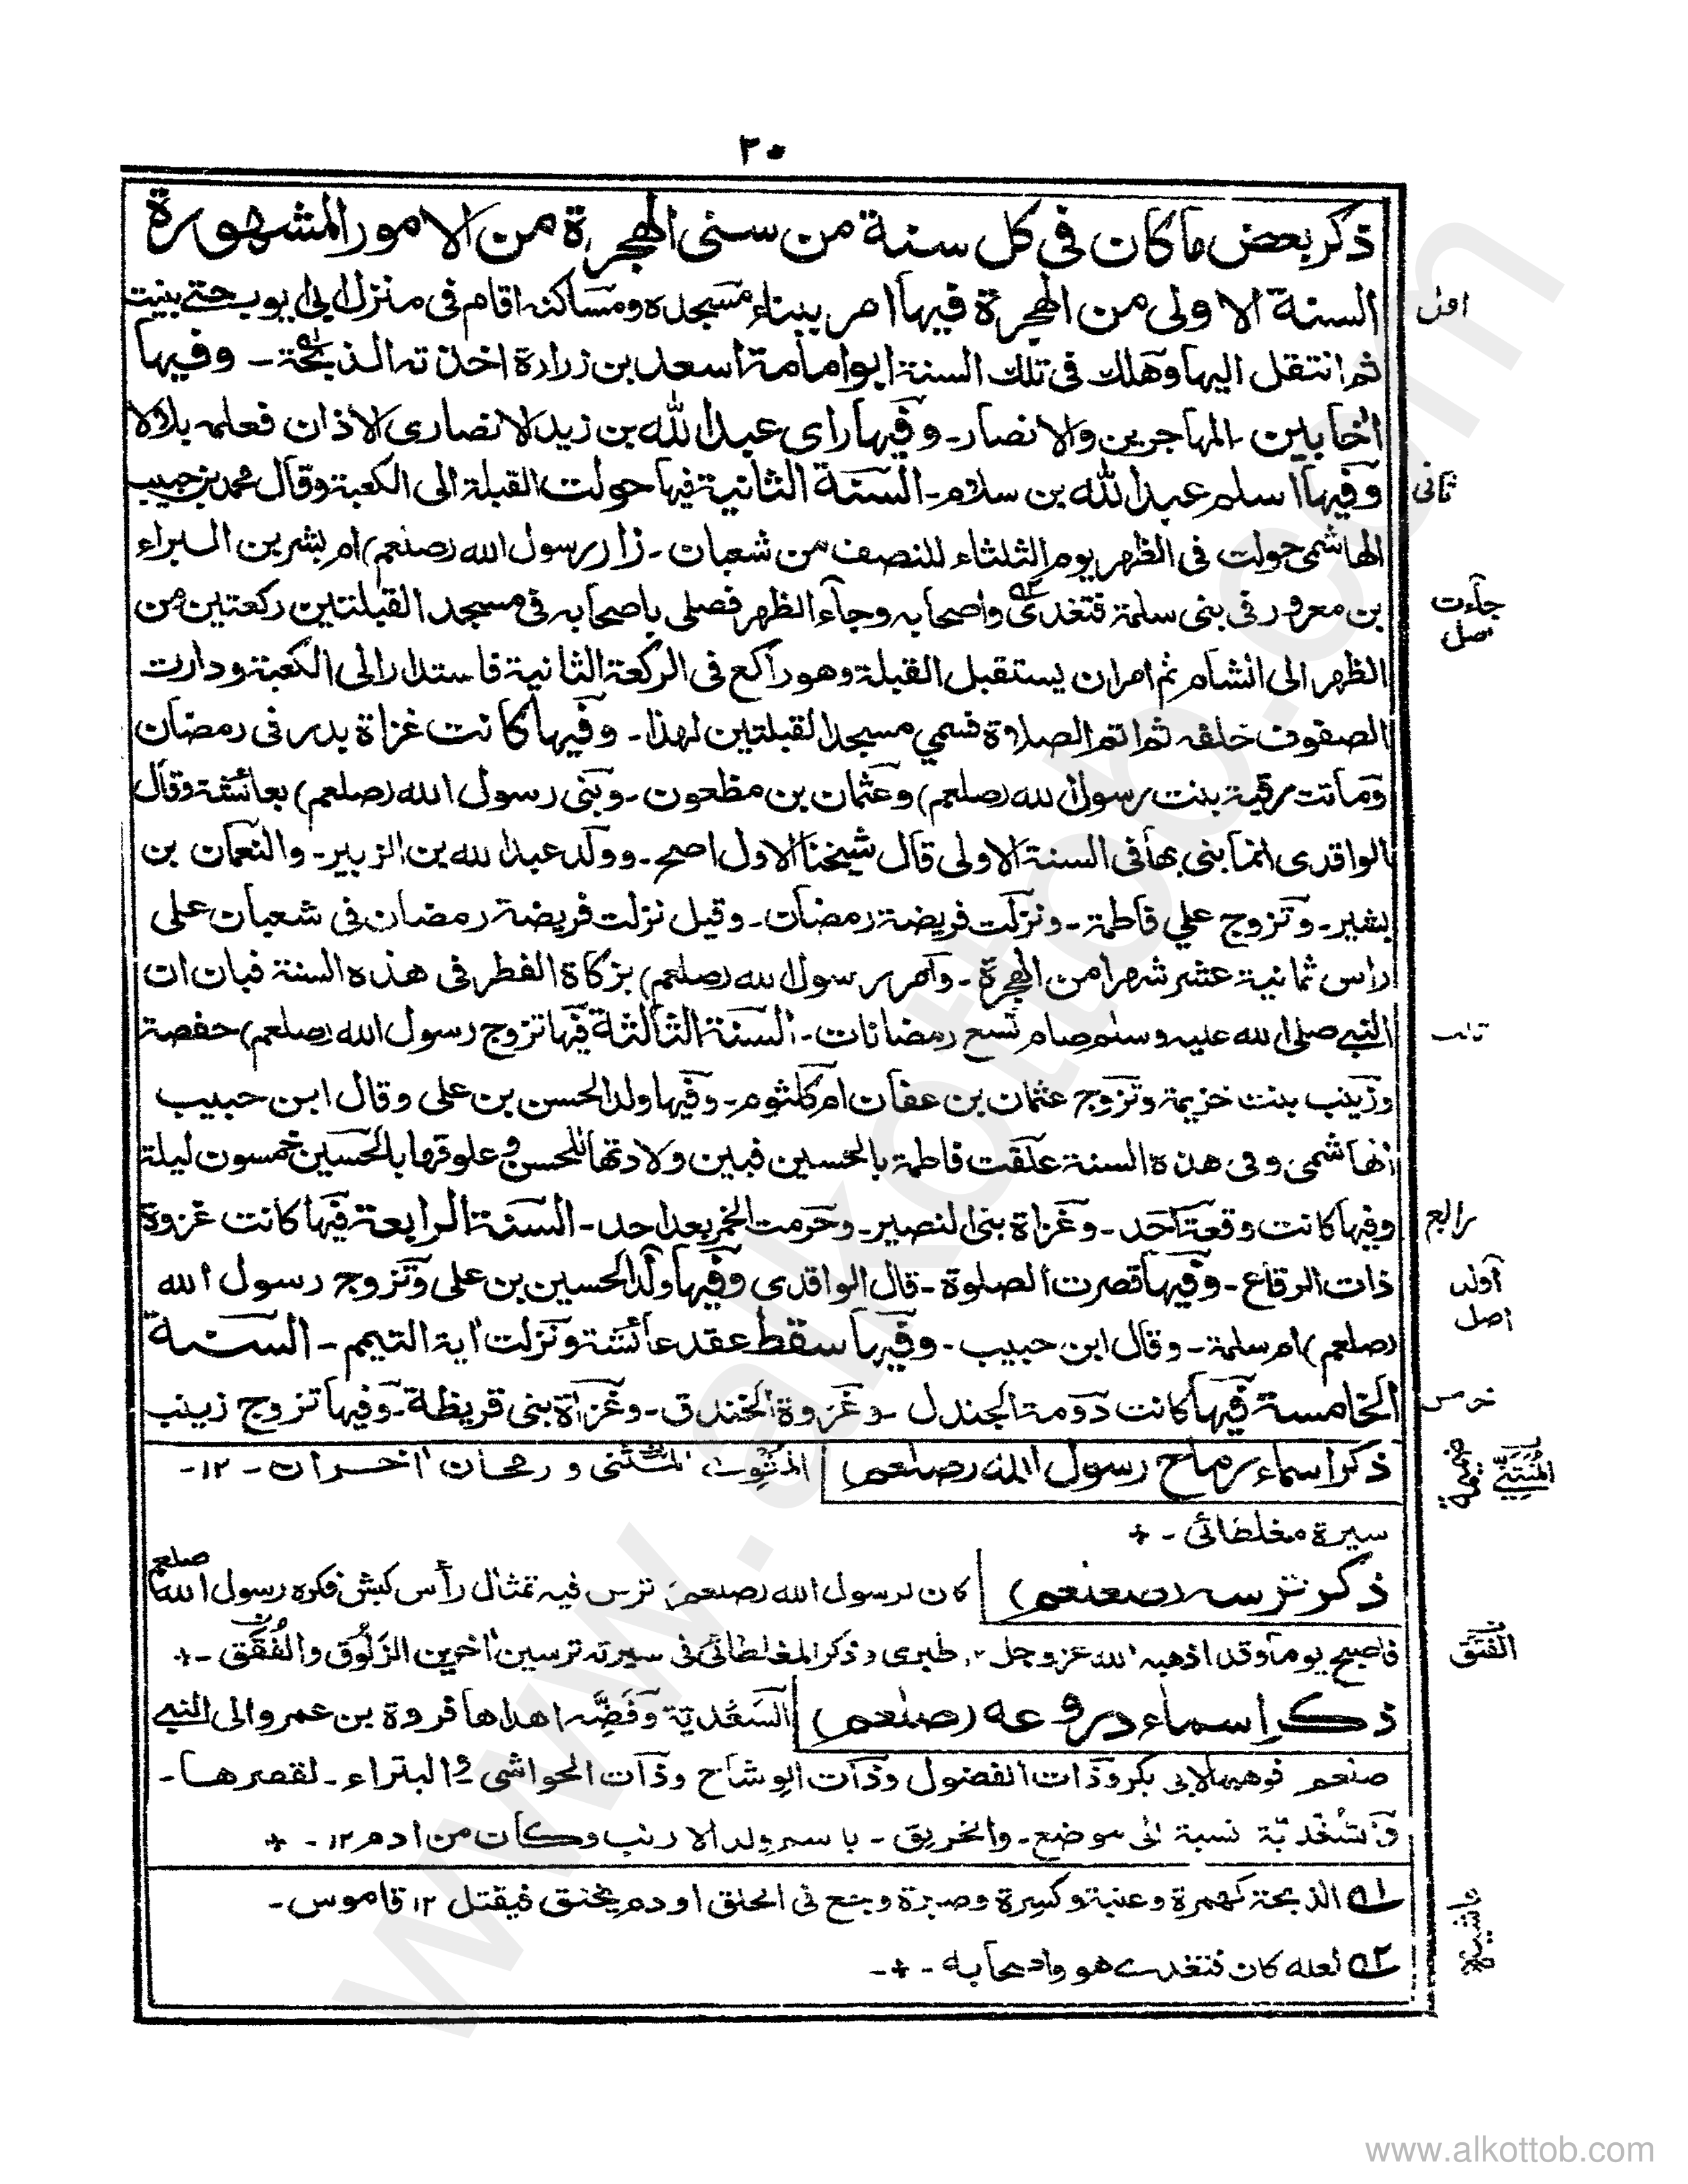 ٢٠
ذكر بعض ما كان فى كل سنة من سنى الهجرة من الامور المشهورة
اول
السنة الاولى من الهجرة فيها امر ببناء مسجده ومساكنه اقام فى منزل ابى ايوب حتے بنيت
ثم انتقل اليها وهلك فى تلك السنة ابو امامة اسعد بن زرارة اخذته الذبحة ۱ـه - وفيها
اخا بين المهاجرين والانصار - وفيها راى عبد الله بن زيد الانصارى الاذان فعلمه بلالا
وفيها اسلم عبد الله بن سلام - السنة الثانية فيها حولت القبلة الى الكعبة وقال محمد بن حبيب
ثانى
الهاشمى حولت فى الظهر يوم الثلثاء للنصف من شعبان - زار رسول الله (صلعم) ام بشر بن البراء
بن معرور فى بنى سلمة فتغدى ۲ـه واصحابه وجاء الظهر فصلى باصحابه فى مسجد القبلتين ركعتين من
جاءت اصل
الظهر الى الشام ثم امر ان يستقبل القبلة وهو راكع فى الركعة الثانية فاستدار الى الكعبة ودارت
الصفوف خلفه ثم اتم الصلاوة فسمي مسجد القبلتين لهذا - وفيها كانت غزاة بدر فى رمضان
وماتت رقية بنت رسول الله (صلعم) وعثمان بن مظعون - وبنى رسول الله (صلعم) بعائشة وقال
الواقدى انما بنى بها فى السنة الاولى قال شيخنا الاول اصح - وولد عبد الله بن الزبير - والنعمان بن
بشير - وتزوج علي فاطمة - ونزلت فريضة رمضان - وقيل نزلت فريضة رمضان فى شعبان على
راس ثمانية عشر شهرا من الهجرة - وامر رسول الله (صلعم) بزكاة الفطر فى هذه السنة فبان ان
النبے صلى الله عليه وسلم صام تسع رمضانات - السنة الثالثة فيها تزوج رسول الله (صلعم) حفصة
وزينب بنت خزيمة وتزوج عثمان بن عفان ام كلثوم - وفيها ولد الحسن بن على وقال ابن حبيب
الهاشمى وفى هذه السنة علقت فاطمة بالحسين فبين ولادتها للحسن وعلوقها بالحسين خمسون ليلة
وفيها كانت وقعة احد - وغزاة بنى النضير - وحرمت الخمر بعد احد - السنة الرابعة فيها كانت غزوة
رابع
ذات الرقاع - وفيها قصرت الصلوة - قال الواقدى وفيها ولد الحسين بن على وتزوج رسول الله
اولد اصل
(صلعم) ام سلمة - وقال ابن حبيب - وفيها سقط عقد عائشة ونزلت اية التيمم - السنة
الخامسة فيها كانت دومة الجندل - وغزوة الخندق - وغزاة بنى قريظة - وفيها تزوج زينب
ذكر اسماء رماح رسول الله (صلعم) المثوى المثنى و رمحان اخران - ١٢ -
سيرة مغلطائى - +
ذكر ترسه (صلعم) كان لرسول الله (صلعم) ترس فيه تمثال رأس كبش فكره رسول الله صلعم
فاصبح يوما وقد اذهبه الله عز وجل ١٢ طبرى وذكر المغلطائى فى سيرته ترسين اخرين الزلوق والفتق - +
الفتق
ذكر اسماء دروعه (صلعم) السعدية وفضة اهداها فروة بن عمرو الى النبے
صلعم فوهبها لابى بكر وذات الفضول وذات الوشاح وذات الحواشى و البتراء - لقصرها -
وسغدية نسبة الى موضع - والخريق - باسم ولد الارنب وكان من ادم ١٢ - +
۱ـه الذبحة كهمزة وعنبة وكسرة وصبرة وجع فى الحلق او دم يخنق فيقتل ١٢ قاموس -
حاشية
۲ـه لعله كان فتغدے هو واصحابه - + -
www.alkottob.com